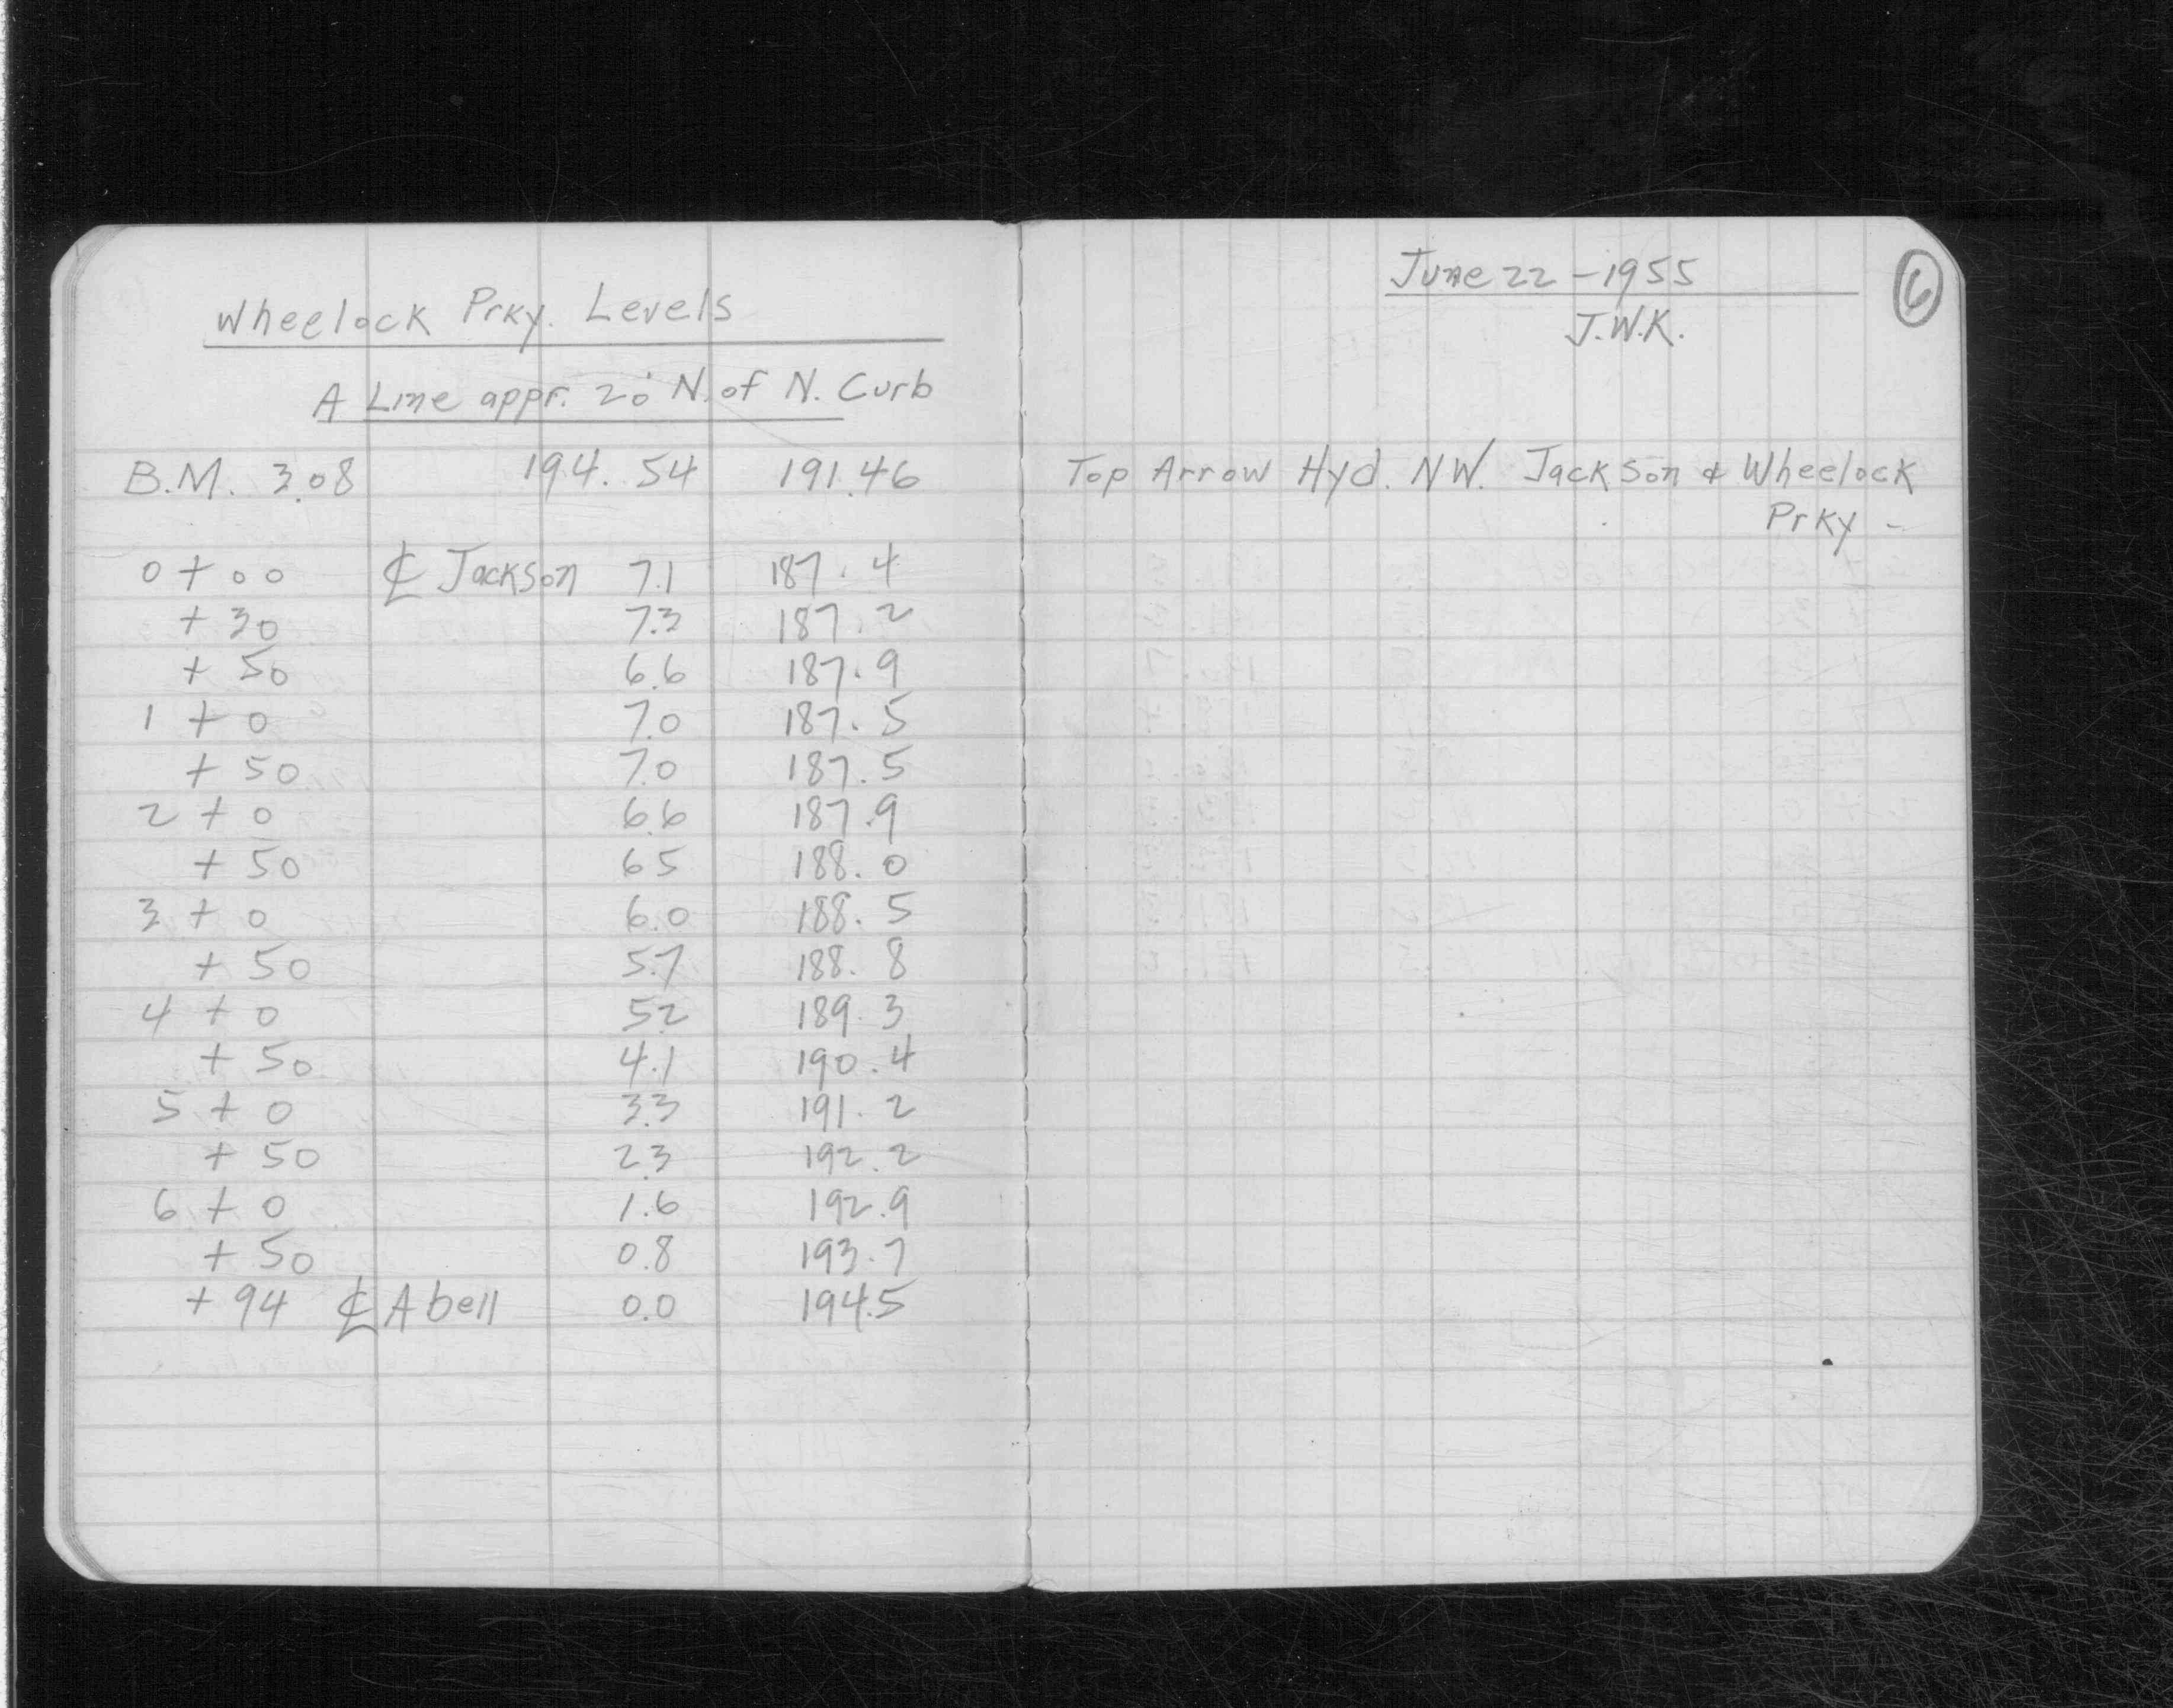 Wheelock Prky. Levels
A Line appr. 20' N. of N. Curb
B.M. 3.08 194.54 191.46
0+00 ℄ Jackson 7.1 187.4
+30 7.3 187.2
+50 6.6 187.9
1+0 7.0 187.5
+50 7.0 187.5
2+0 6.6 187.9
+50 6.5 188.0
3+0 6.0 188.5
+50 5.7 188.8
4+0 5.2 189.3
+50 4.1 190.4
5+0 3.3 191.2
+50 2.3 192.2
6+0 1.6 192.9
+50 0.8 193.7
+94 ℄ Abell 0.0 194.5
June 22-1955
6
J.W.K.
Top Arrow Hyd. NW. Jackson & Wheelock
Prky -